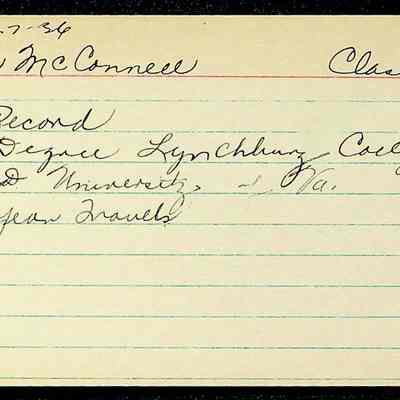 -7-36
McConnell Clas
Record
Degree Lynchburg Coll
D University of Va.
pean Travels